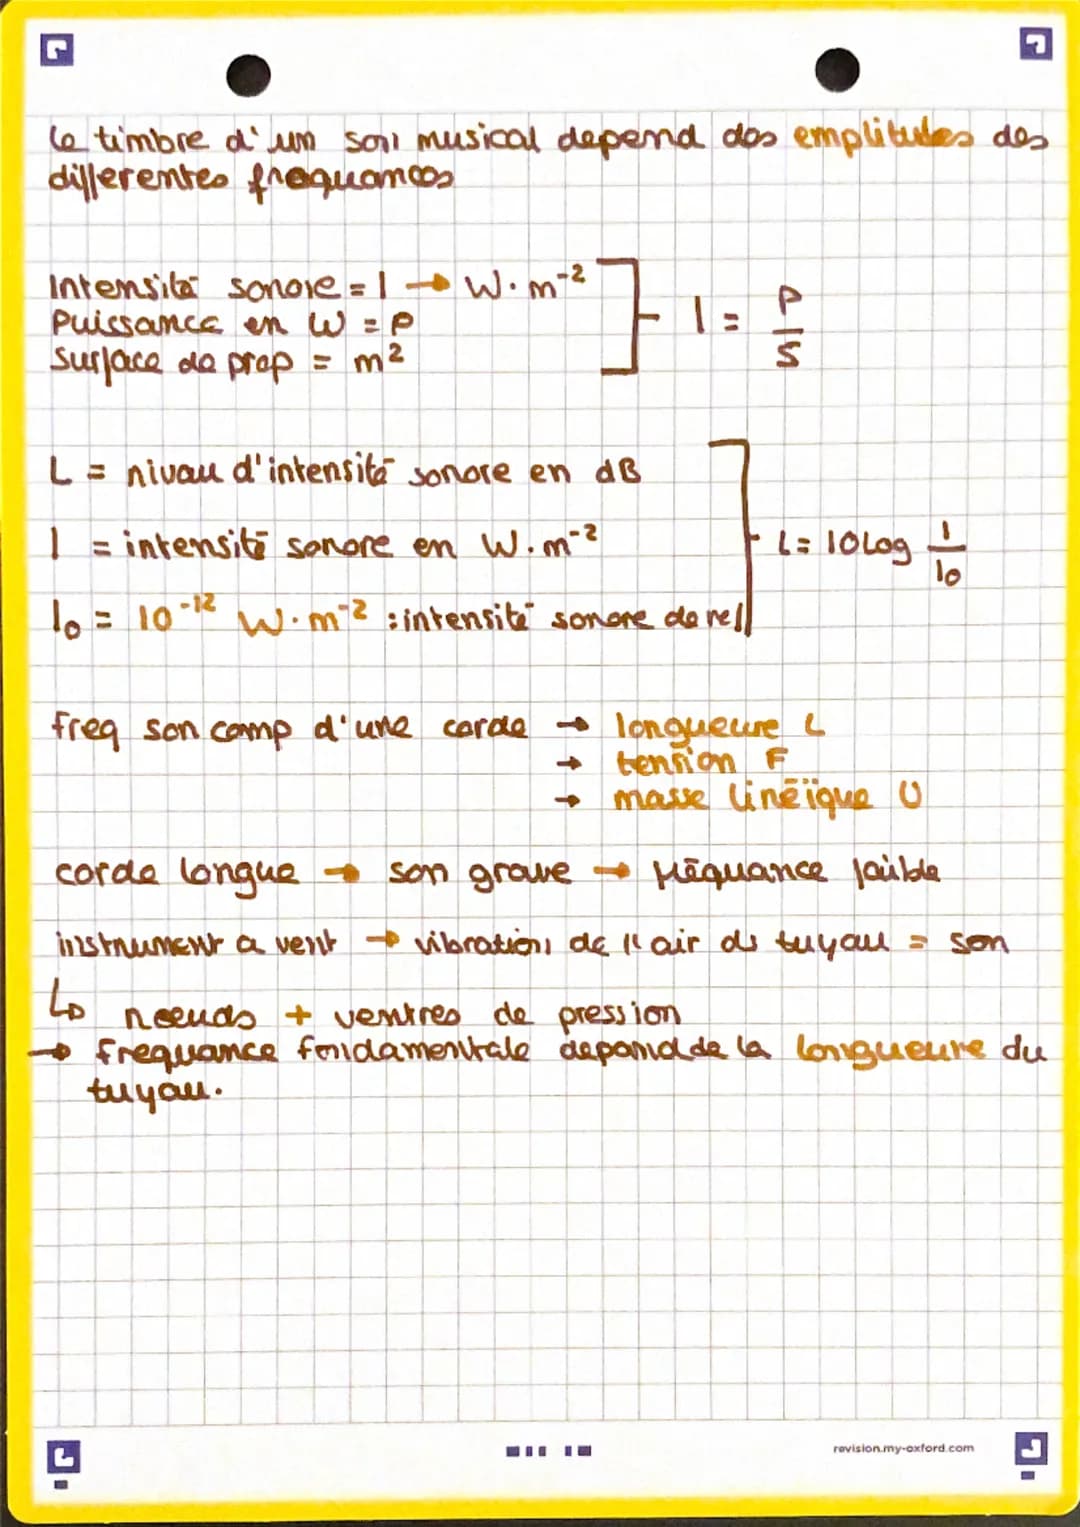 le timbre d'un son musical depend des emplitudes des
differentes frequances
Intensité sonore = I → W·m⁻²
Puissance en W = P
Surface de prop = m²
I = P/S
L = nivau d'intensité sonore en dB
I = intensité sonore en W·m⁻²
I₀ = 10⁻¹² W·m⁻² : intensité sonore de ref
L = 10 Log I/I₀
freq son comp d'une corde → longueure L
→ tension F
→ masse linéïque U
corde longue → son grave → fréquance faible
instrument a vent → vibration de l'air ds tuyau = son
↳ noeuds + ventres de pression
→ frequance fondamentale depand de la longueure du
tuyau.
revision.my-oxford.com